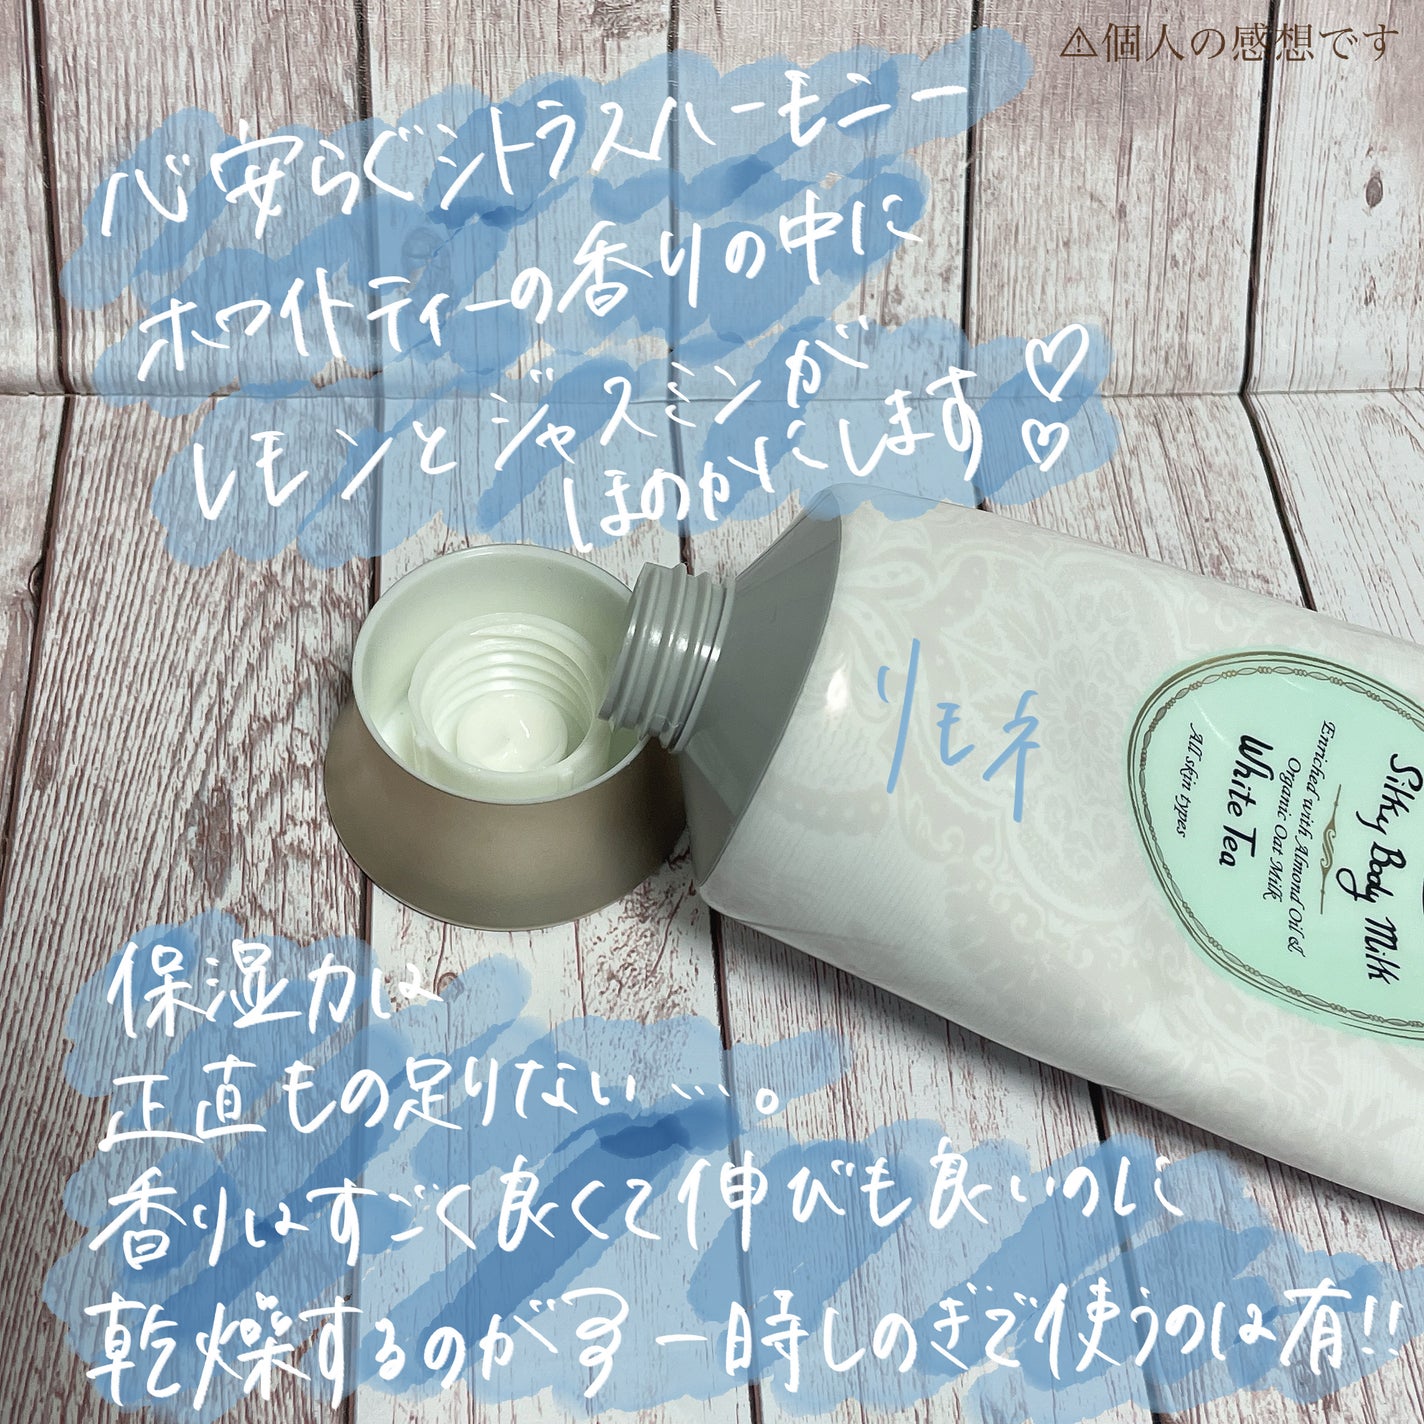 ⚠個人の感想です
心安らぐシトラスハーモニー
ホワイトティーの香りの中に
レモンとジャスミンが
ほのかにします♡♡
リモネ
Silky Body Milk
Enriched with Almond Oil &
Organic Oat Milk
White Tea
All skin types
保湿力は
正直もの足りない…。
香りはすごく良くて伸びも良いのに
乾燥するのが 一時しのぎで使うのは有!!